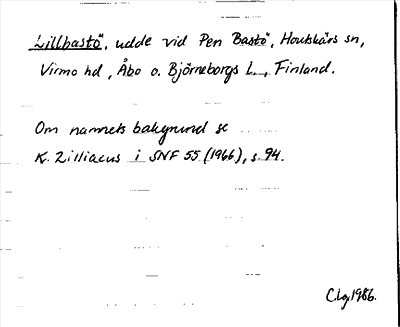 Lillbastö, udde vid Pen Bastö, Houtskärs sn,
Virmo hd, Åbo o. Björneborgs L., Finland.
Om namnets bakgrund se
K. Zilliacus i SNF 55 (1966), s. 94.
Clg 1986.